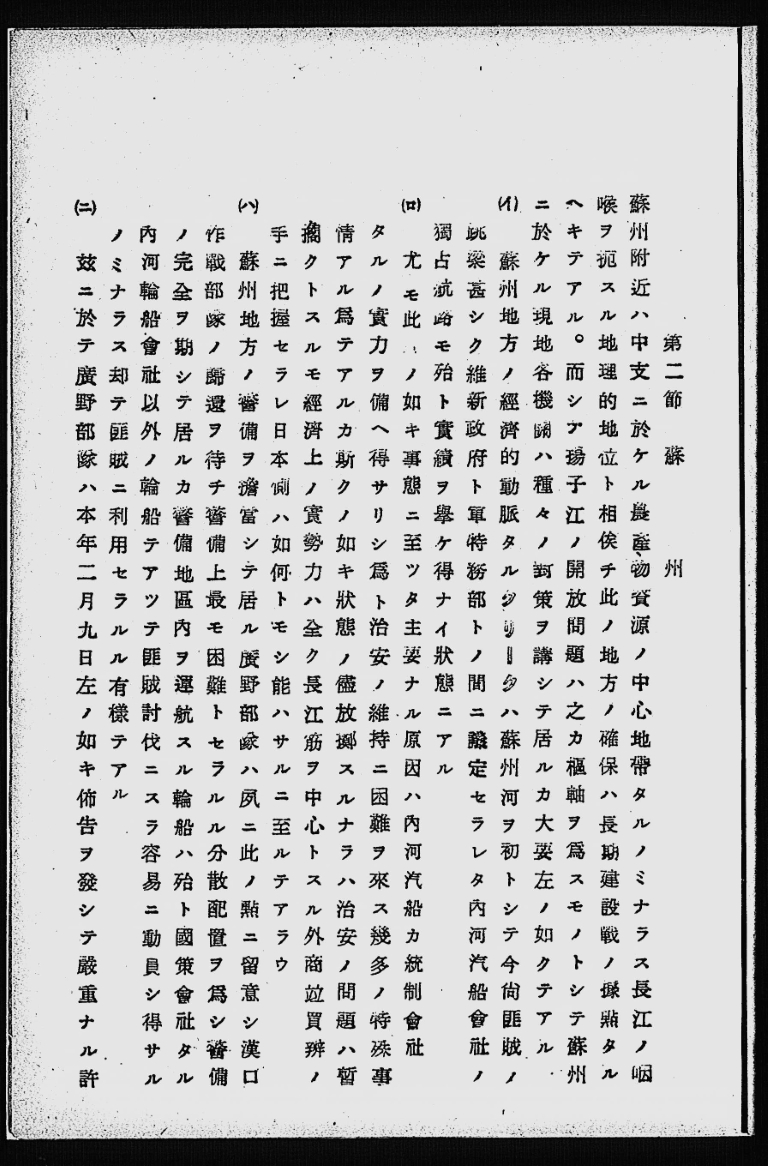 第二節 蘇 州
蘇州附近ハ中支ニ於ケル農產物資源ノ中心地帶タルノミナラス長江ノ咽
喉ヲ扼スル地理的地位ト相俟チ此ノ地方ノ確保ハ長期建設戰ノ據點タル
ヘキテアル。而シテ揚子江ノ開放問題ハ之カ樞軸ヲ爲スモノトシテ蘇州
ニ於ケル現地各機關ハ種々ノ對策ヲ講シテ居ルカ大要左ノ如クテアル
(イ) 蘇州地方ノ經濟的動脈タルクリークハ蘇州河ヲ初トシテ今尙匪賊ノ
跳梁甚シク維新政府ト軍特務部トノ間ニ議定セラレタ內河汽船會社ノ
獨占航路モ殆ト實績ヲ擧ケ得ナイ狀態ニアル
(ロ) 尤モ此ノ如キ事態ニ至ツタ主要ナル原因ハ內河汽船カ統制會社
タルノ實力ヲ備ヘ得サリシ爲ト治安ノ維持ニ困難ヲ來ス幾多ノ特殊事
情アル爲テアルカ斯クノ如キ狀態ノ儘放擲スルナラハ治安ノ問題ハ暫
ク擱クトスルモ經濟上ノ實勢力ハ全ク長江筋ヲ中心トスル外商竝買辨ノ
手ニ把握セラレ日本側ハ如何トモシ能ハサルニ至ルテアラウ
(ハ) 蘇州地方ノ警備ヲ擔當シテ居ル廣野部隊ハ夙ニ此ノ點ニ留意シ漢口
作戰部隊ノ歸還ヲ待チ警備上最モ困難トセラルル分散配置ヲ爲シ警備
ノ完全ヲ期シテ居ルカ警備地區內ヲ運航スル輪船ハ殆ト國策會社タル
內河輪船會社以外ノ輪船テアツテ匪賊討伐ニスラ容易ニ動員シ得サル
ノミナラス却テ匪賊ニ利用セラルル有樣テアル
(ニ) 玆ニ於テ廣野部隊ハ本年二月九日左ノ如キ佈告ヲ發シテ嚴重ナル許